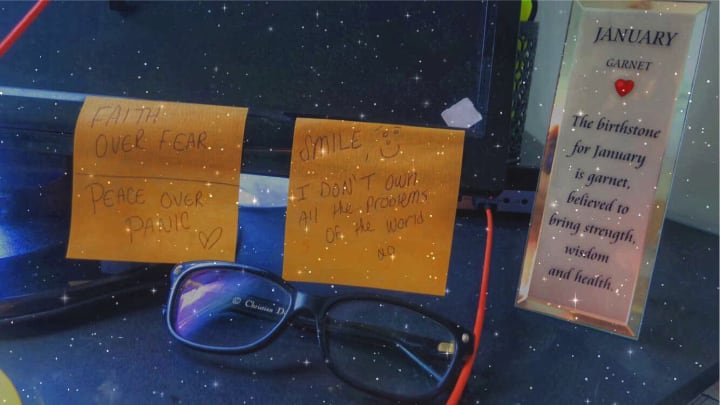 FAITH
OVER FEAR
PEACE OVER
PANIC
SMILE,
I DON'T OWN
All the Problems
OF the WORLD
© Christian D
JANUARY
GARNET
The birthstone
for January
is garnet,
believed to
bring strength,
wisdom
and health.